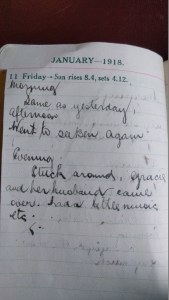 JANUARY—1918.
11 Friday—Sun rises 8.4, sets 4.12.
Morning
Same as yesterday,
afternoon
Went to again
Evening
Stuck around, Grace
and her husband came
over. had little music
etc.